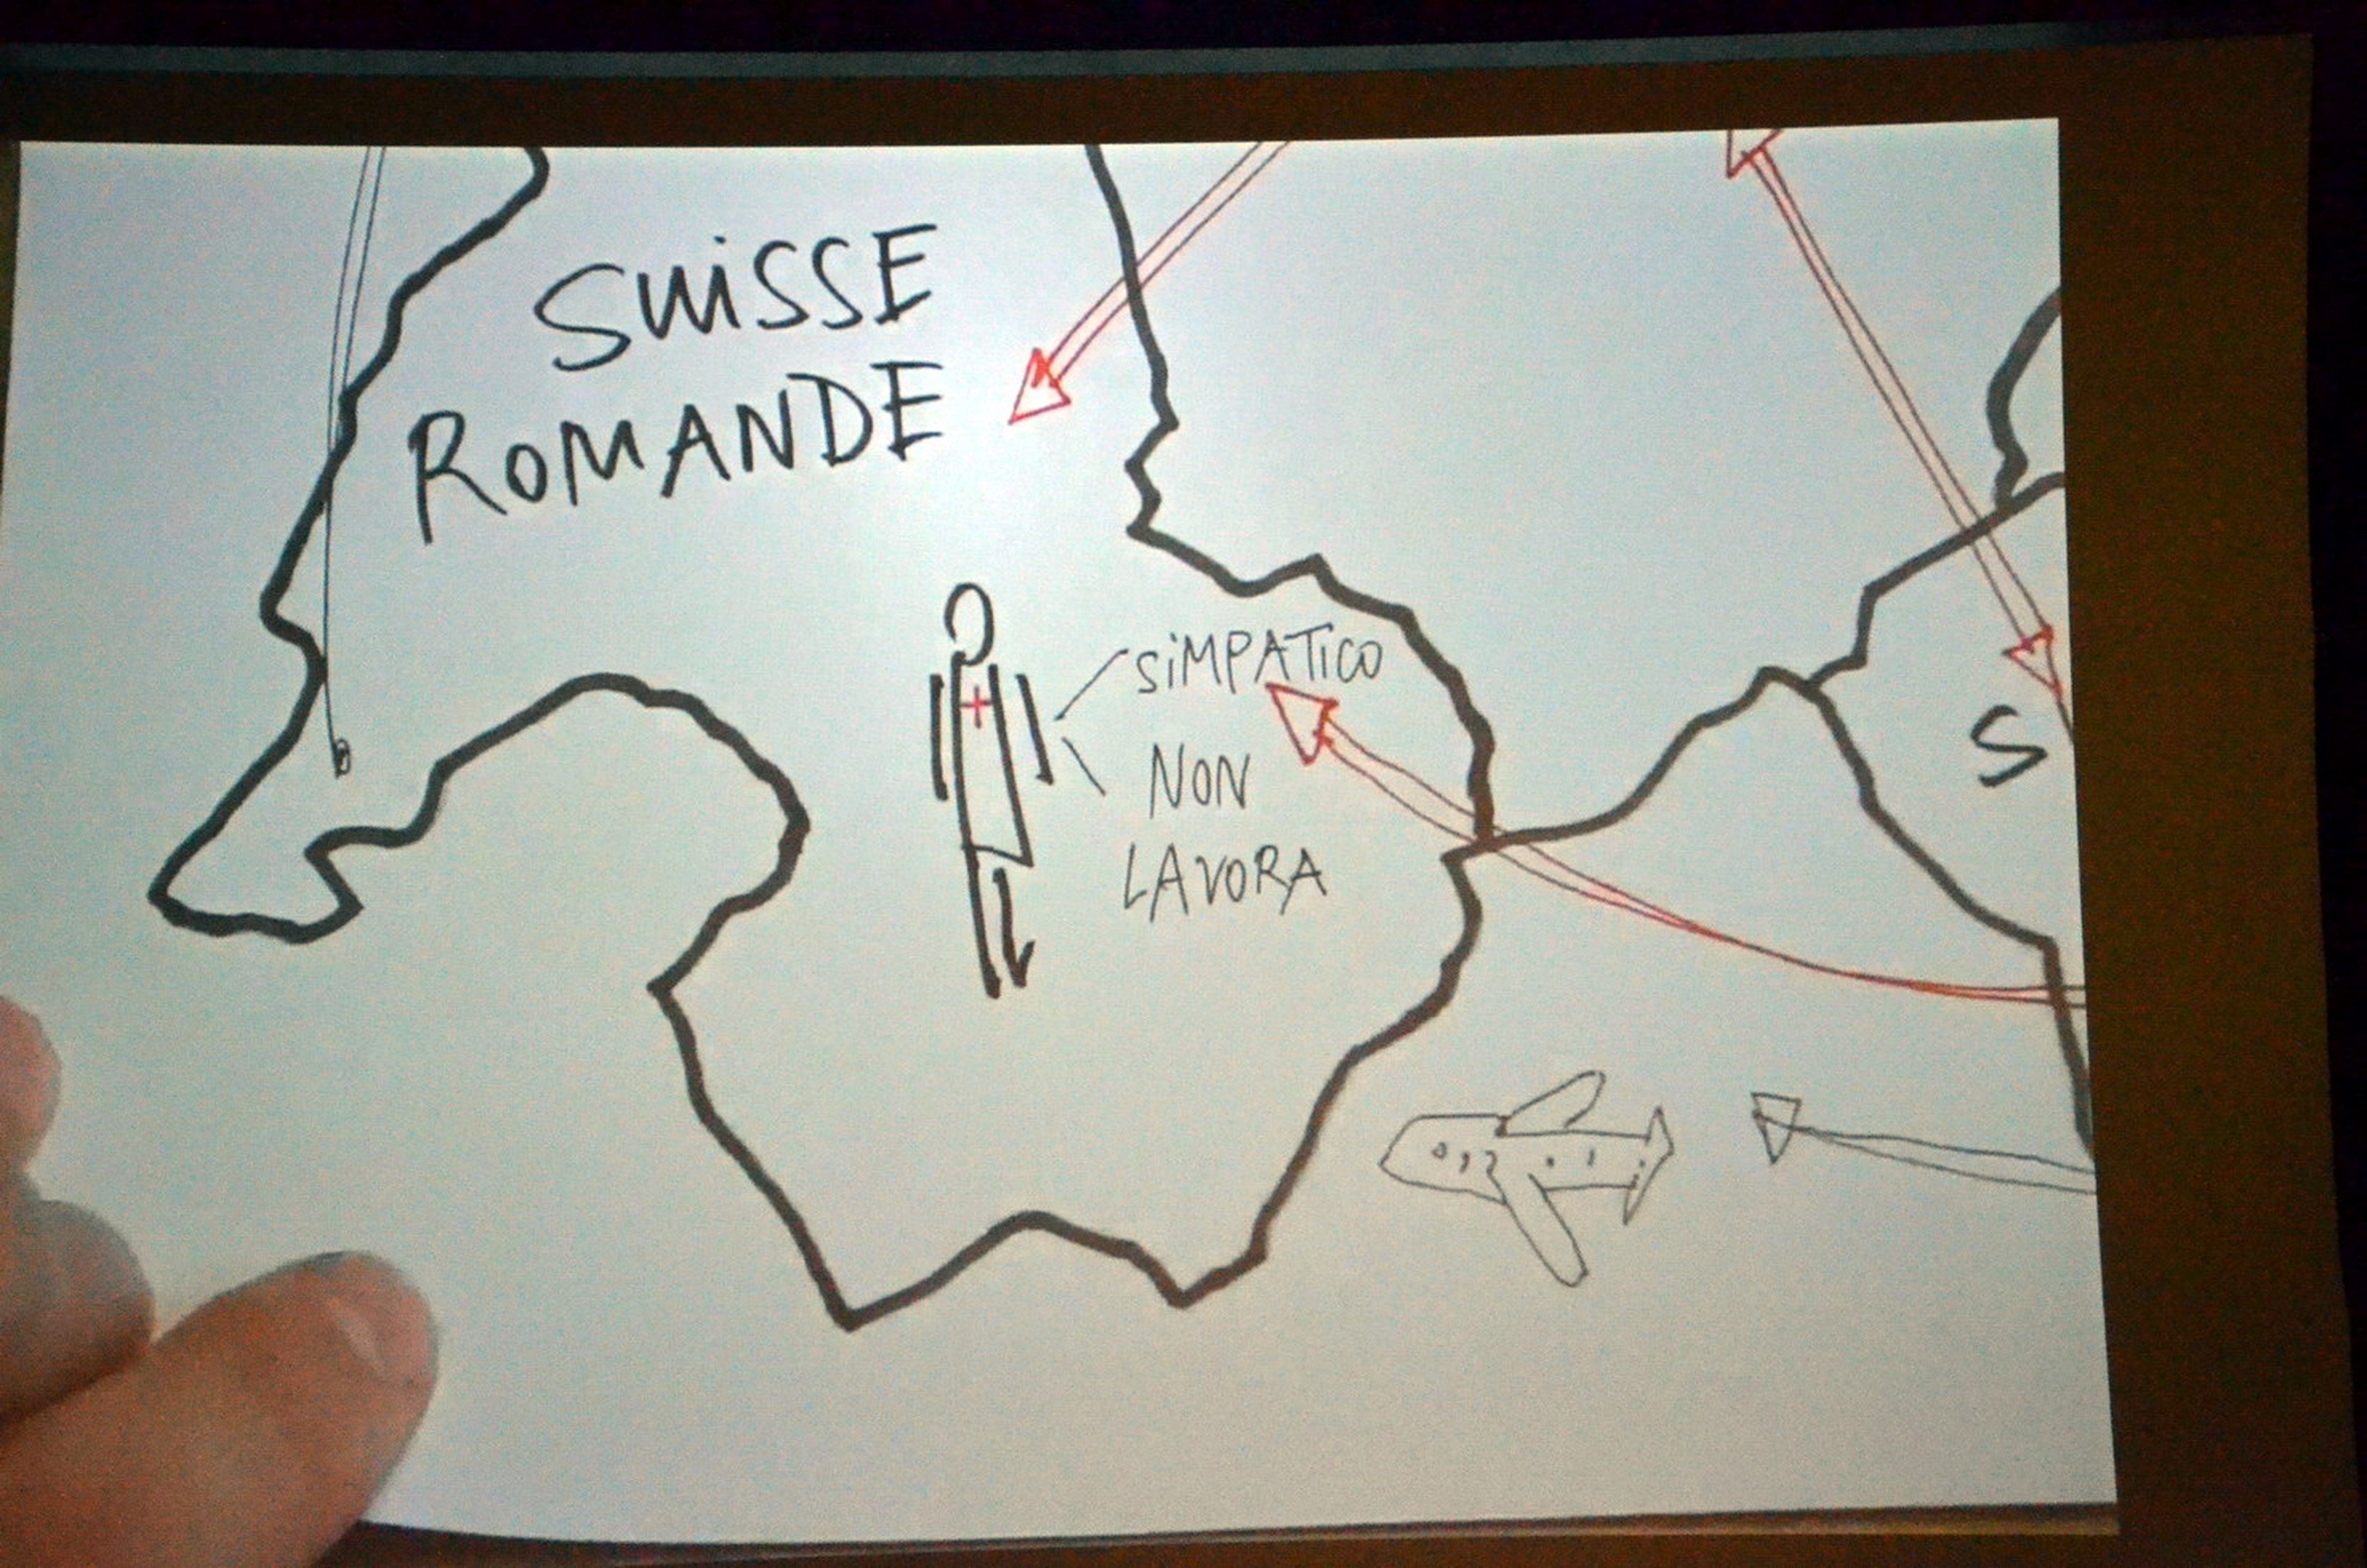 SUISSE
ROMANDE
SIMPATICO
NON
LAVORA
S